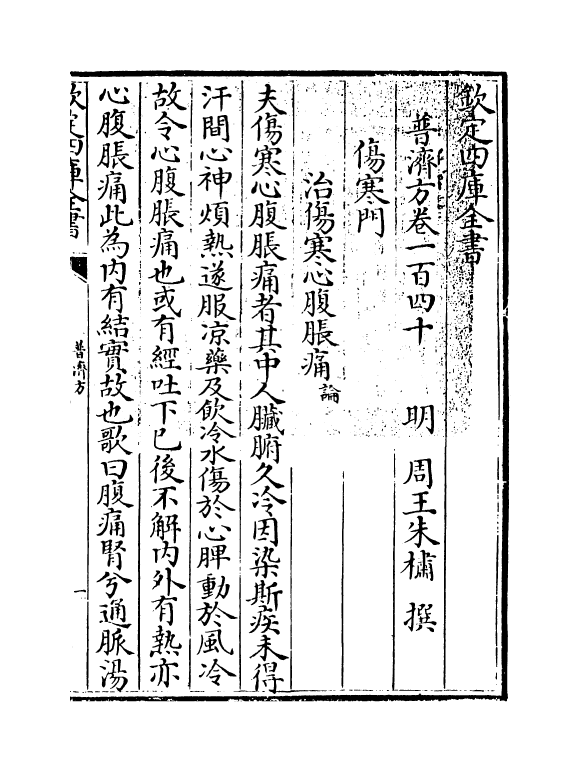 欽定四庫全書
普濟方卷一百四十 明 周王朱橚 撰
傷寒門
治傷寒心腹脹痛論
夫傷寒心腹脹痛者其中人臟腑久冷因染斯疾未得
汗間心神煩熱遂服凉藥及飲冷水傷於心脾動於風冷
故令心腹脹痛也或有經吐下已後不解内外有熱亦
心腹脹痛此為内有結實故也歌曰腹痛腎兮通脈湯
欽定四庫全書
普濟方
一